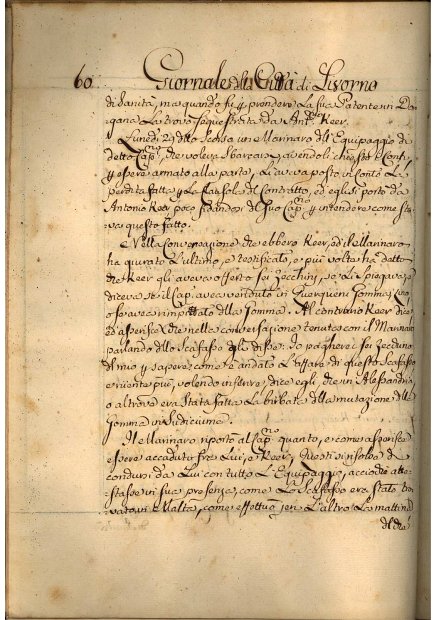 60 Giornale della Città di Livorno
di Sanità, ma quando fu p prendere la sua Patente in Do=
gana la trovò sequestrata da Ant.º Keer.
Lunedi 29 dllo scorso un Marinaro dll'Equipaggio di
detto Cap.no, che voleva sbarcare, avendoli chiesto i Conti,
p essere armato alla parte, li aveva posto in Conto la
perdita fatta p la del Contratto, ed egli si portò da
Antonio Keer poco fidandosi dl suo Cap.no p intendere come sta
va questo fatto.
Nella Conversazione che ebbero Keer, ed il Marinaro
ha giurato l'ultimo, e ratificato, e più volte ha detto
che Keer gli aveva offerto sei Zecchini, se li spiegava, e
diceva se il Cap. aveva venduto in Gomma,
o se aveva rimpiattato dlla Gomma. Al contrario Keer dice
ed asserisce, che nella conversazione tenutas con il Marinaro
parlando dllo Scafasso gli disse: Io pagherei sei zecchini
dl mio p sapere come è andato l'affare di questo Scafasso
e niente più, volendo inferire, dice egli, che in Alessandria
o altrove era stata fatta la birbata dlla mutazione dlla
Gomma in sudiciume.
Il Marinaro riportò al Cap.no quanto, e come asserisce
essere accaduto fra Lui, e Keer, Questi risolse di
condursi da Lui con tutto l'Equipaggio, acciochè atte=
stasse in sua presenza, come lo Scafasso era stato tro
vato in Malta, come effettuò jeri l'altro la mattina
del dì